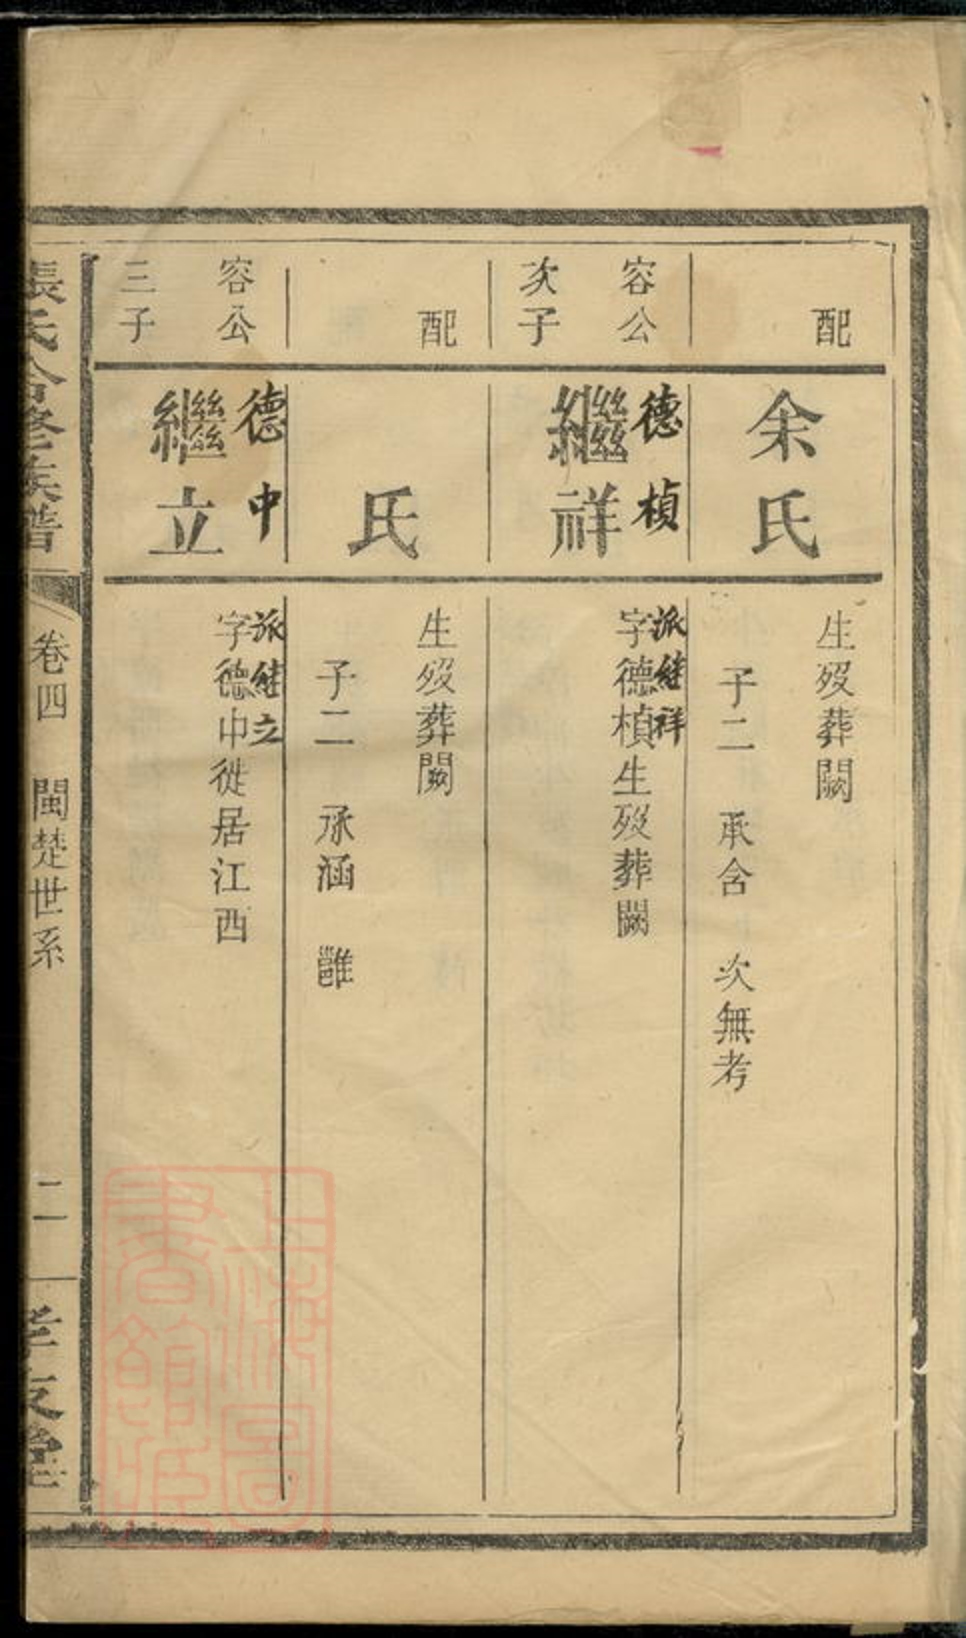 配
余氏
生歿葬闕
子二 承含 次無考
容公
次子
德楨
繼祥
派継祥
字德楨生歿葬闕
配
氏
生歿葬闕
子二 承涵 雝
容公
三子
德中
繼立
派継立
字德中徙居江西
張氏合修族譜
卷四 閩楚世系
二
孝友堂
上海圖
書館藏